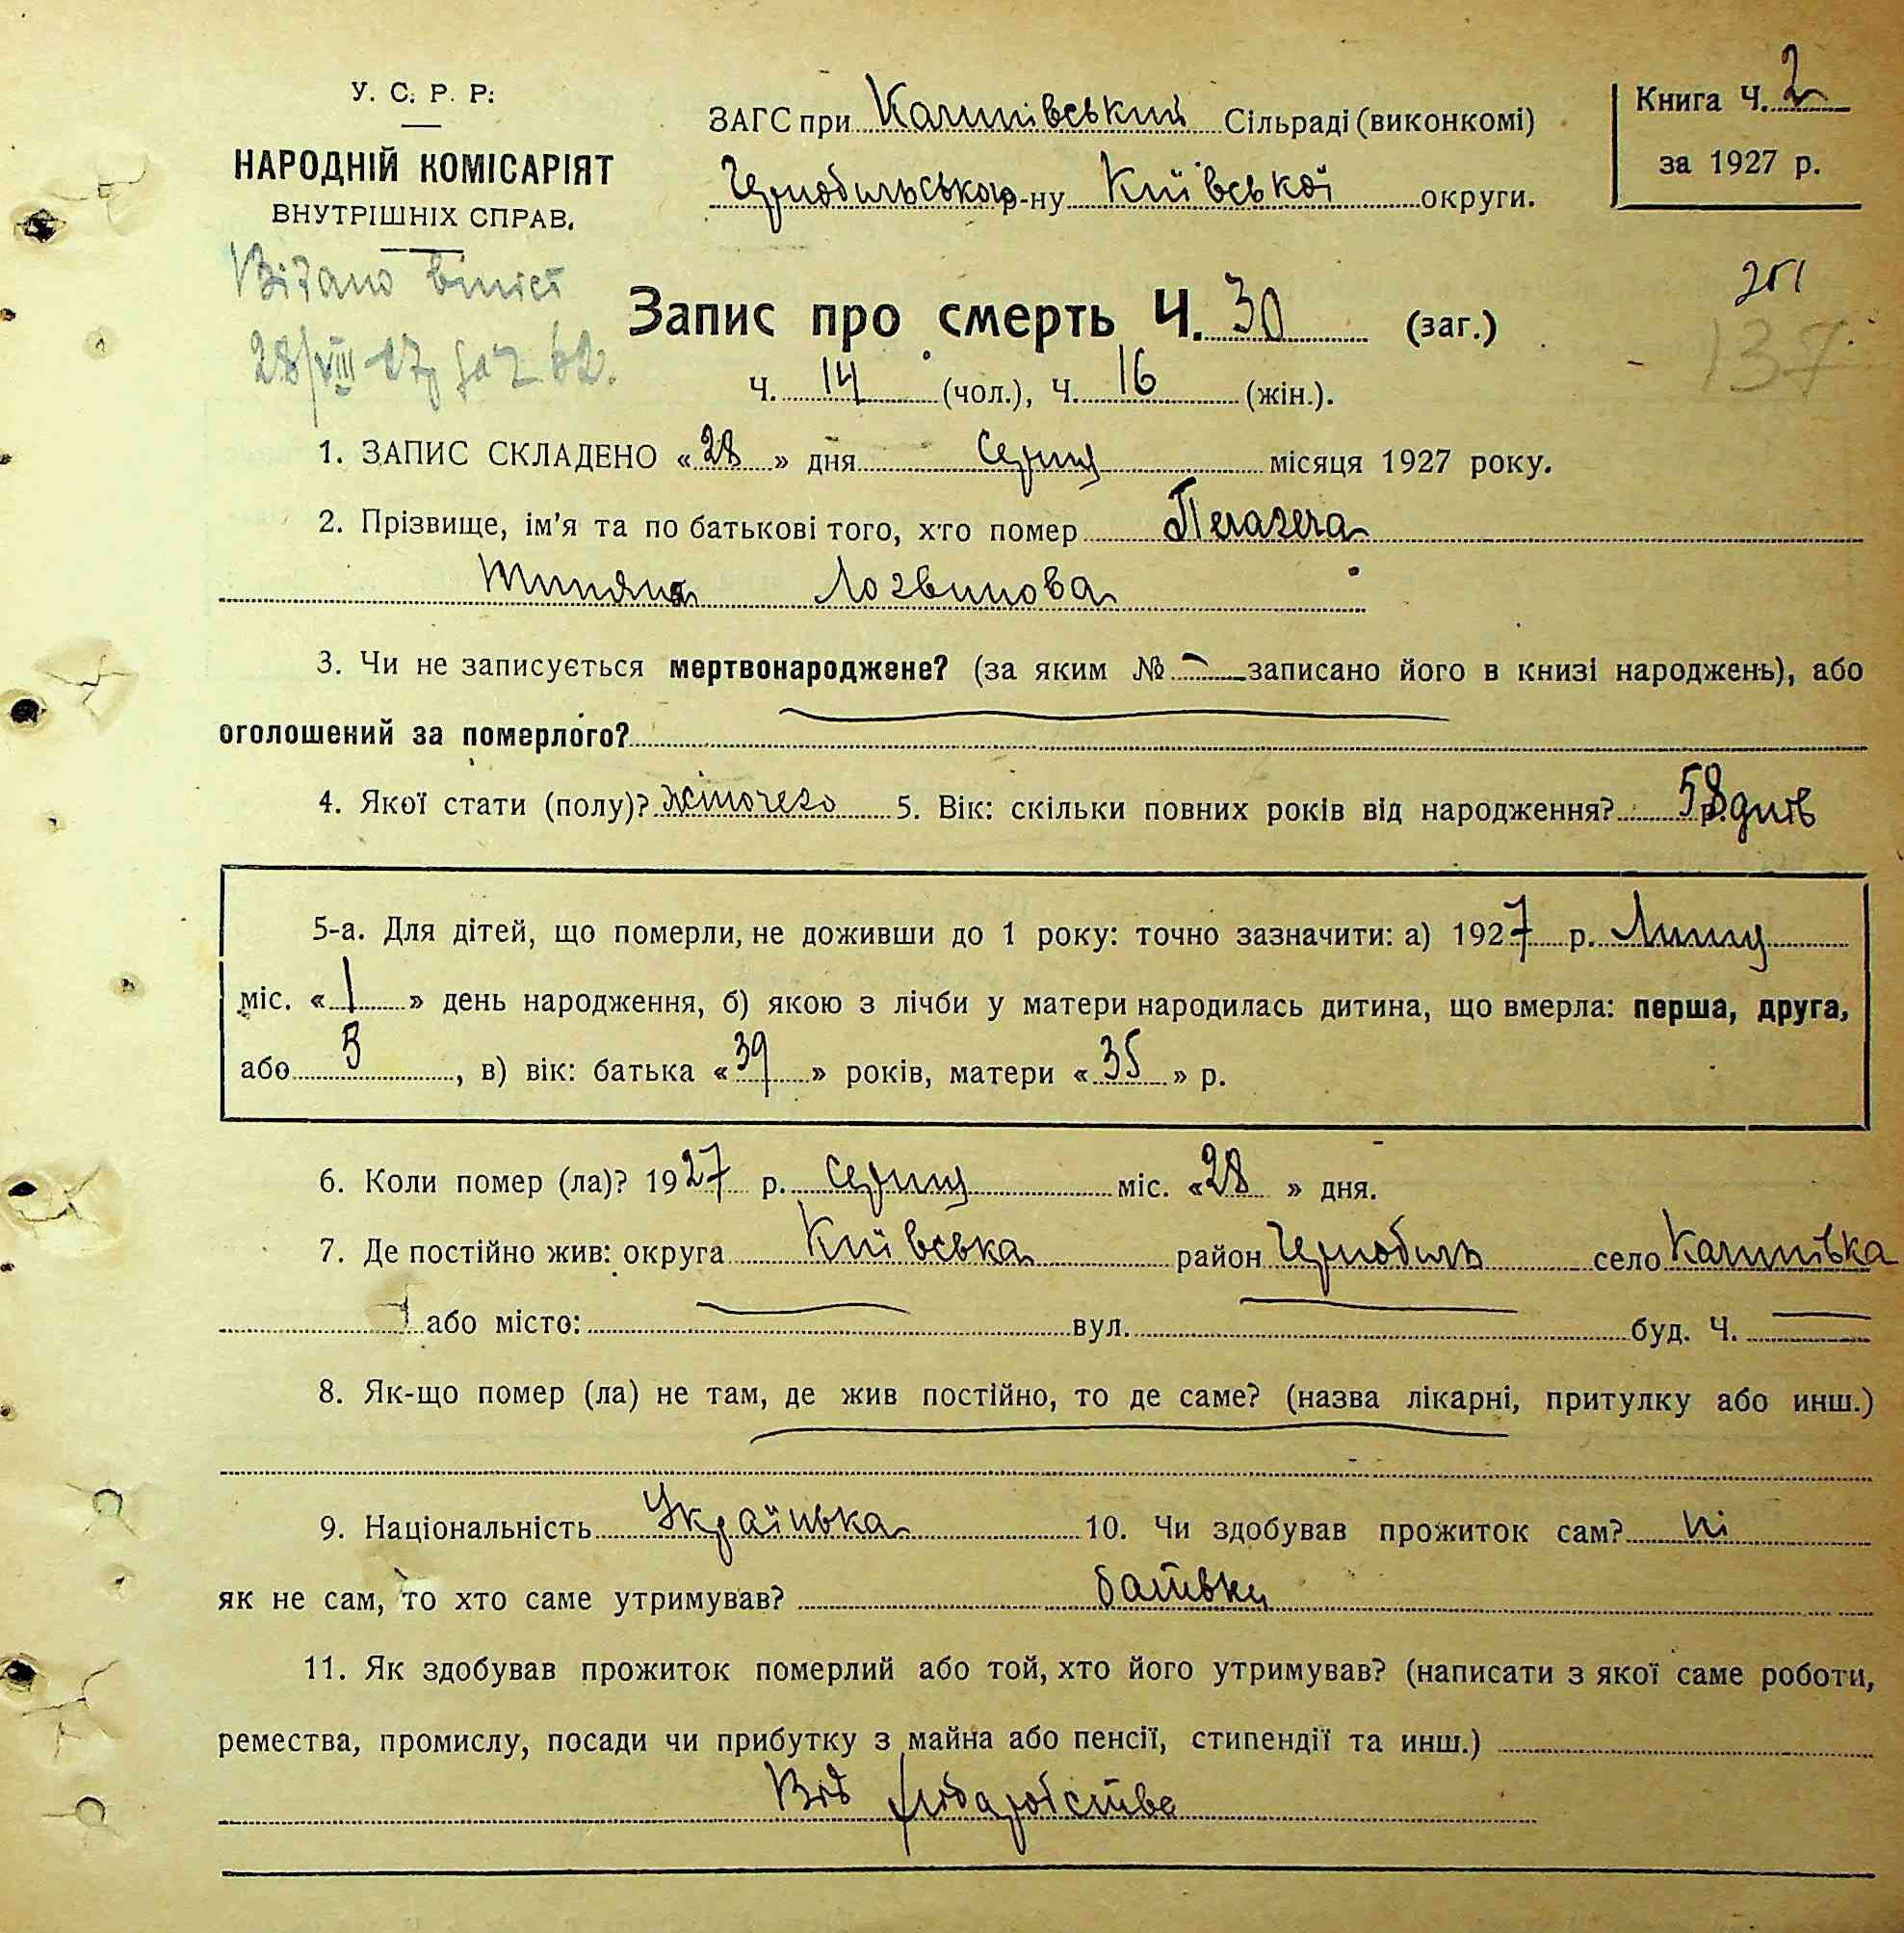 У. С. Р. Р.
НАРОДНІЙ КОМІСАРІЯТ
ВНУТРІШНІХ СПРАВ.
ЗАГС при Калинівський Сільраді (виконкомі)
Чернобильського р-ну Київської округи.
Книга Ч. 2
за 1927 р.
Видано
28/VIII 27 за 62.
201
137
Запис про смерть Ч. 30 (заг.)
Ч. 14 (чол.), Ч. 16 (жін.).
1. ЗАПИС СКЛАДЕНО «28» дня Серпня місяця 1927 року.
2. Прізвище, ім'я та по батькові того, хто помер
Логвинова
3. Чи не записується мертвонароджене? (за яким № — записано його в книзі народжень), або
оголошений за померлого?
4. Якої стати (полу)? жіночего 5. Вік: скільки повних років від народження? 58 р. днів
5-а. Для дітей, що померли, не доживши до 1 року: точно зазначити: а) 1927 р. Липня
міс. «1» день народження, б) якою з лічби у матери народилась дитина, що вмерла: перша, друга,
або 5, в) вік: батька «39» років, матери «35» р.
6. Коли помер (ла)? 1927 р. Серпня міс. «28» дня.
7. Де постійно жив: округа Київська район Чернобиль село Калинівка
або місто: вул. буд. Ч.
8. Як-що помер (ла) не там, де жив постійно, то де саме? (назва лікарні, притулку або инш.)
9. Національність Українька 10. Чи здобував прожиток сам? ні
як не сам, то хто саме утримував? батьки
11. Як здобував прожиток померлий або той, хто його утримував? (написати з якої саме роботи,
ремества, промислу, посади чи прибутку з майна або пенсії, стипендії та инш.)
Від хлібаробства